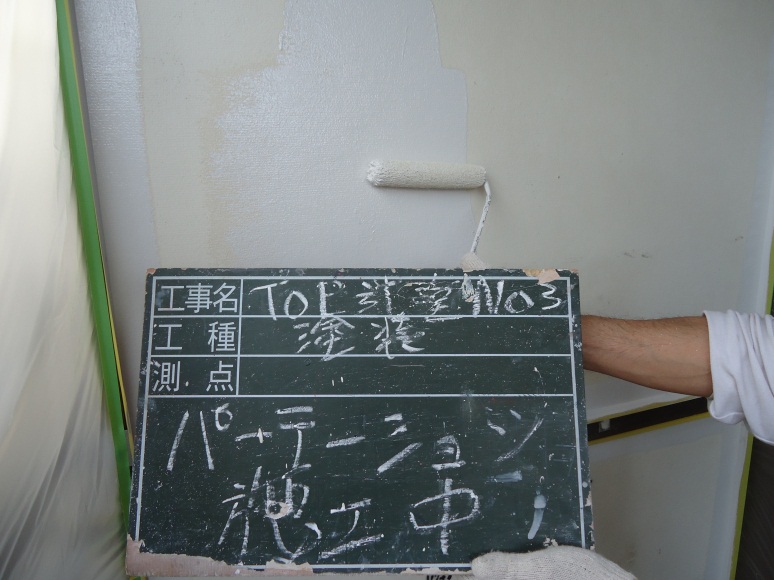 工事名 TOビ No3
工種 塗装
測点
パーテーション
施工中